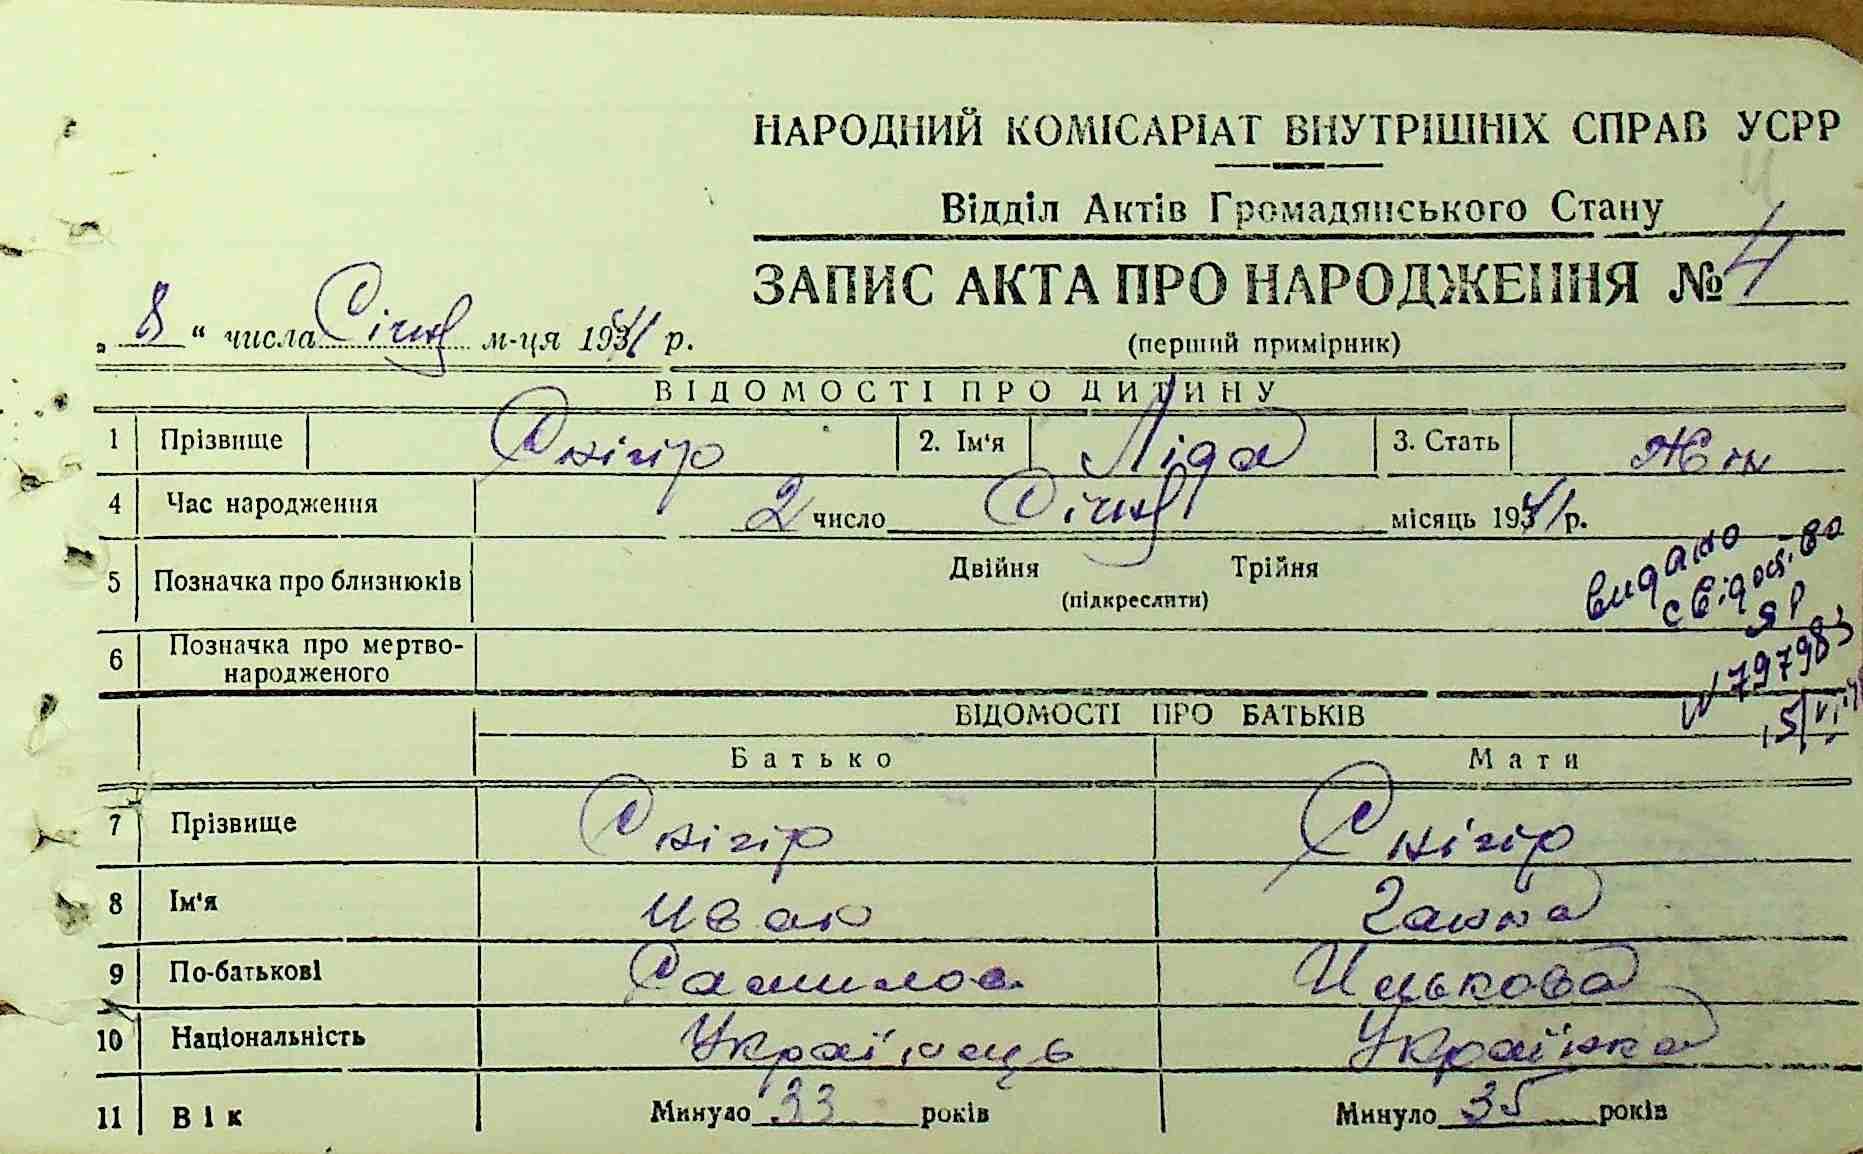 НАРОДНИЙ КОМІСАРІАТ ВНУТРІШНІХ СПРАВ УСРР
Відділ Актів Громадянського Стану
ЗАПИС АКТА ПРО НАРОДЖЕННЯ № 4
„ 8 “ числа Січня м-ця 1941 р.
(перший примірник)
ВІДОМОСТІ ПРО ДИТИНУ
1 Прізвище Снігір 2. Ім'я Ліда 3. Стать Жін
4 Час народження 2 число Січня місяць 1941 р.
5 Позначка про близнюків Двійня Трійня
(підкреслити)
видано
свідоц-во
ЯР
N 797983
6 Позначка про мертво-
народженого
ВІДОМОСТІ ПРО БАТЬКІВ
Батько Мати
7 Прізвище Снігір Снігір
8 Ім'я Иван Ганна
9 По-батькові Самилов Илькова
10 Національність Українець Українка
11 Вік Минуло 33 років Минуло 35 років